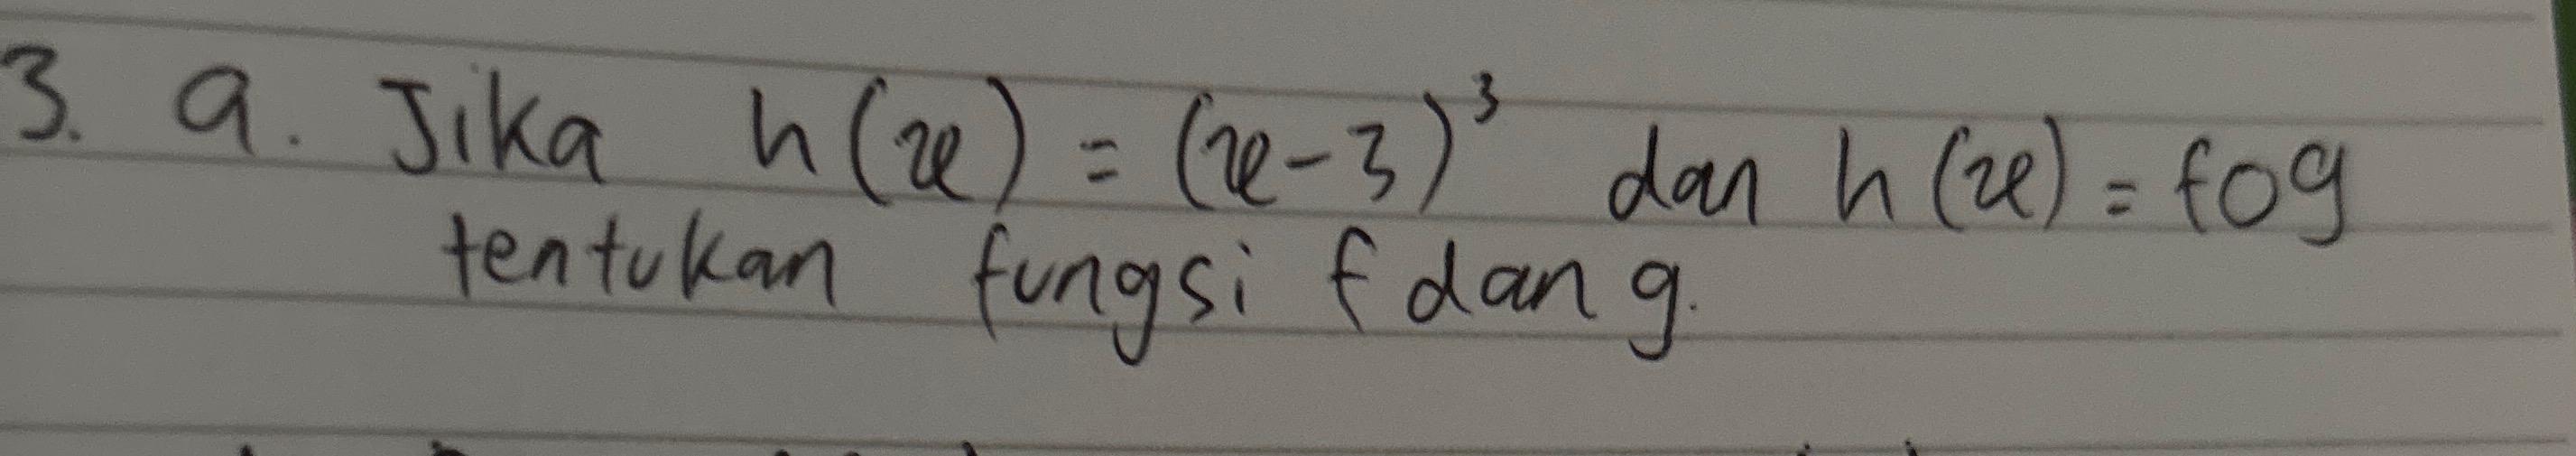 3. a. Jika h(x) = (x-3)³ dan h(x) = fog
tentukan fungsi f dan g.